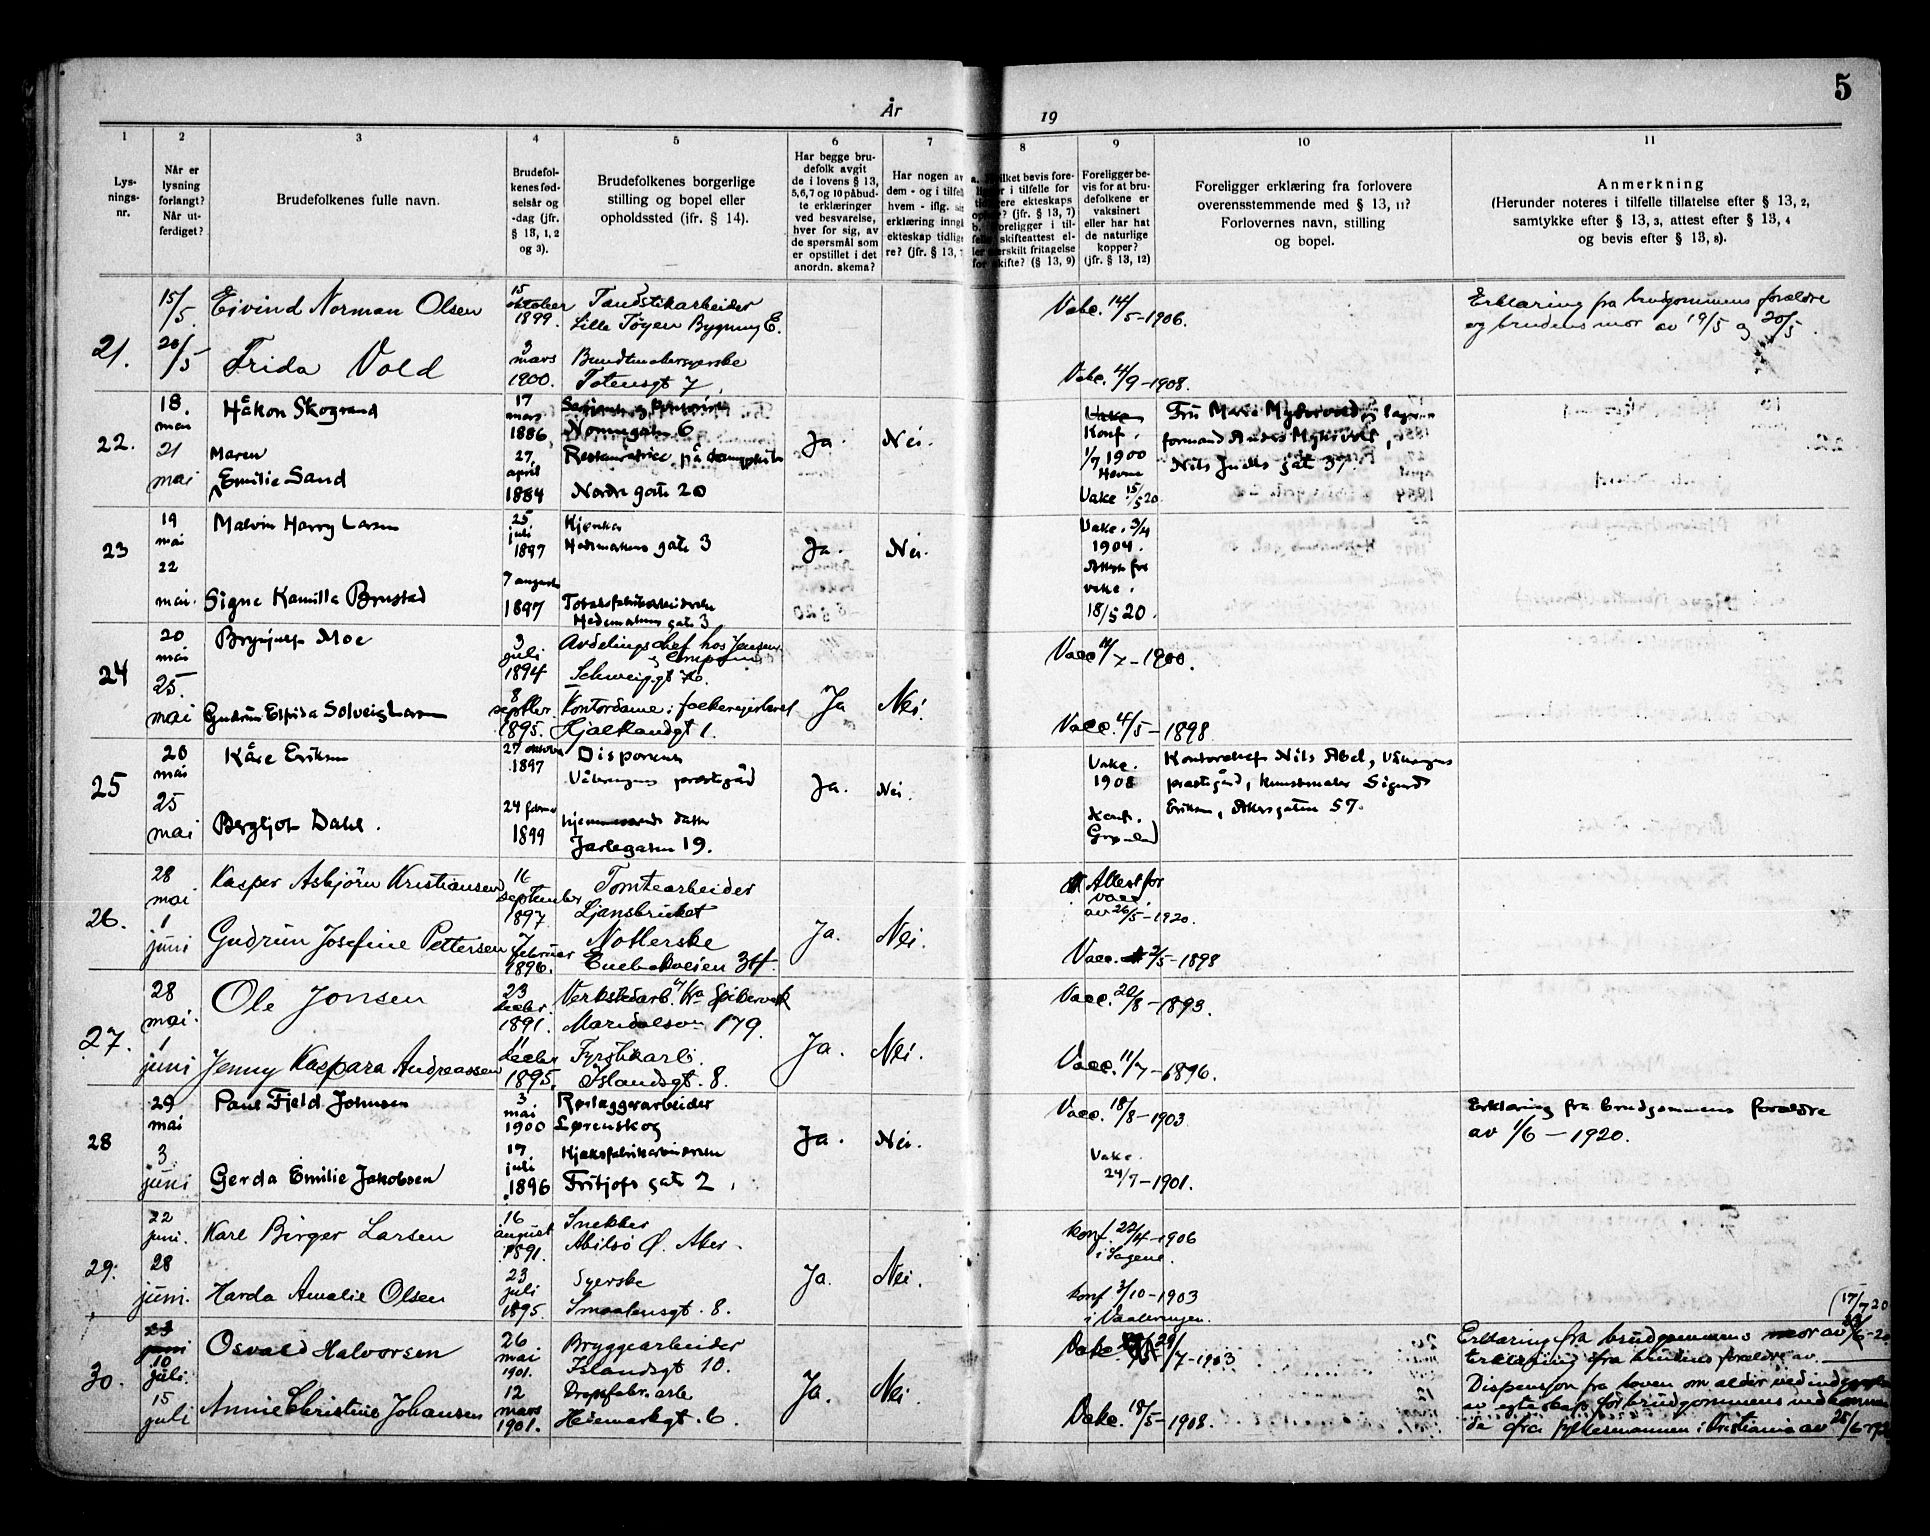 5
År 19
1 2 3 4 5 6 7 8 9 10 11
Lys-
nings-
nr.
Når er
lysning
forlangt?
Når ut-
ferdiget?
Brudefolkenes fulle navn.
Brudefol-
kenes fød-
selsår og
-dag (jfr.
§ 13, 1, 2
og 3).
Brudefolkenes borgerlige
stilling og bopel eller
opholdssted (jfr. § 14).
Har begge bru-
defolk avgit
de i lovens § 13,
5,6,7 og 10 påbud-
te erklæringer
ved besvarelse,
hver for sig, av
de spørsmål som
er opstillet i det
anordn. skema?
Har nogen av
dem - og i tilfelle
hvem - iflg.
erklæring inngått
ekteskap tidlige-
re? (jfr. § 13,
a. Hvilket bevis fore-
ligger i tilfelle for
tidligere ekteskaps
ophør? (jfr. § 13, 7)
b. Foreligger i til-
felle skifteattest el-
ler særskilt fritagelse
for skifte? (§ 13, 9)
Foreligger be-
vis for at bru-
defolkene er
vaksinert
eller har hat
de naturlige
kopper?
(jfr. § 13, 12)
Foreligger erklæring fra forlovere
overensstemmende med § 13, 11?
Forlovernes navn, stilling
og bopel.
Anmerkning
(Herunder noteres i tilfelle tillatelse efter § 13, 2,
samtykke efter § 13, 3, attest efter § 13, 4
og bevis efter § 13, 8).
21. 15/5. Eivind Norman Olsen 15 oktober 1899. Tændstikarbeider
Lille Tøyen Bygning E. Vakc. 14/5-1906. Erklæring fra brudgommens forældre
og brudens mor av 19/5 og 20/5
20/5 Frida Vold 3 mars 1900. Buntmakersyerske
Totensgt 7 Vakc. 4/9-1908.
22. 18. mai Håkon Skogrand 17 mars 1886,
Normgaten 6 Ja. Nei. Vakc Konf. 1/7 1900 Fru Marie Myhrvold og lager-
formand Anders Myhrvold,
Nils Juels gat 37.
21 mai Maren
Emilie Sand 27. april 1884 Restauratrice på dampskib
Nordre gate 20 Vakc 15/5 20.
23 19 mai Malvin Harry Larsen 25. juli 1897
Hedemarkens gate 3 Ja. Nei. Vakc. 3/4 1904.
22 mai. Signe Kamilla Brustad 7 august 1897 Tobaksfabrikarbeiderske
Hedemarkens gate 3 Attest for vakc. 18/5 20.
24 20 mai Brynjulf Moe 3 juli 1894 Avdelingschef hos Jensen
og Compani
Schweigsgt 70. Ja Nei. Vacc. 11/7-1900.
25. mai Gudrun Elfrida Solveig Larsen 8 septbr. 1895. Kontordame i
Hjelklandgt 1. Vacc. 4/5-1898
25 20 mai Kåre Eriksen 27 oktober 1897 Disponent
Vålerengens prestegård Ja. Nei. Vakc. 1908 Kontorchef Nils Abel, Vålerengens
prestegård, kunstmaler Sigurd
Eriksen, Akersgaten 57.
25 mai Bergljot Dahl. 24 februar 1899 hjemmeværende datter
Jarlegaten 19. Konf. Grønland
26. 28 mai Kasper Asbjørn Kristiansen 16 september 1897 Tomtearbeider
Ljansbruket Ja. Nei. Attest for
vacc.
av 26/5-1920.
1 juni Gudrun Josefine Pettersen 7 februar 1896. Notterske
Enebakveien 34. Vacc. 2/5-1898
27. 28 mai. Ole Jonsen 23 decbr. 1891. Verkstedarb. v/ Kra Spikerverk
Maridalsvn 179. Ja. Nei. Vacc. 20/8-1893.
1 juni Jenny Kaspara Andreassen 11 decbr 1895. Fyrstikarb.
Islandsgt. 8. Vacc. 11/7-1896.
28 29 mai Paul Fjeld Johnsen 3. mai 1900 Rørlæggerarbeider
Lørenskog Ja. Nei. Vacc. 18/8-1903 Erklæring fra brudgommens forældre
av 1/6-1920.
3 juni Gerda Emilie Jakobsen 17. juli 1896 Kjeksfabrikarbeiderske
Fritjofs gate 2, Vakc. 24/7-1901.
29. 22 juni. Karl Birger Larsen 16 august 1891. Snekker
Abilsø Ø. Aker. Ja. Nei. Konf. 22/4-1906
i Sagene.
28 juni. Harda Amalie Olsen 23 juli 1895 Syerske
Smaalensgt. 8. Konf 3/10-1903
i Vaalerengen.
30. 23 juni 10 juli. Osvald Halvorsen 26 mai 1901. Bryggearbeider
Islandsgt 10. Ja. Nei. Vakc. 29/7-1903 (17/7 20
Erklæring fra brudgommens mor av 23/6-20
Erklæring fra brudens forældre av
15 juli Annie Christine Johansen 12 mars 1901. Dropsfabr.arb.
Hedemarkgt. 6. Vakc. 18/5-1908. Dispensjon fra loven om alder ved indgaaelse
av egteskap for brudgommens vedkommen-
de fra fylkesmannen i Kristiania av 25/6-1920